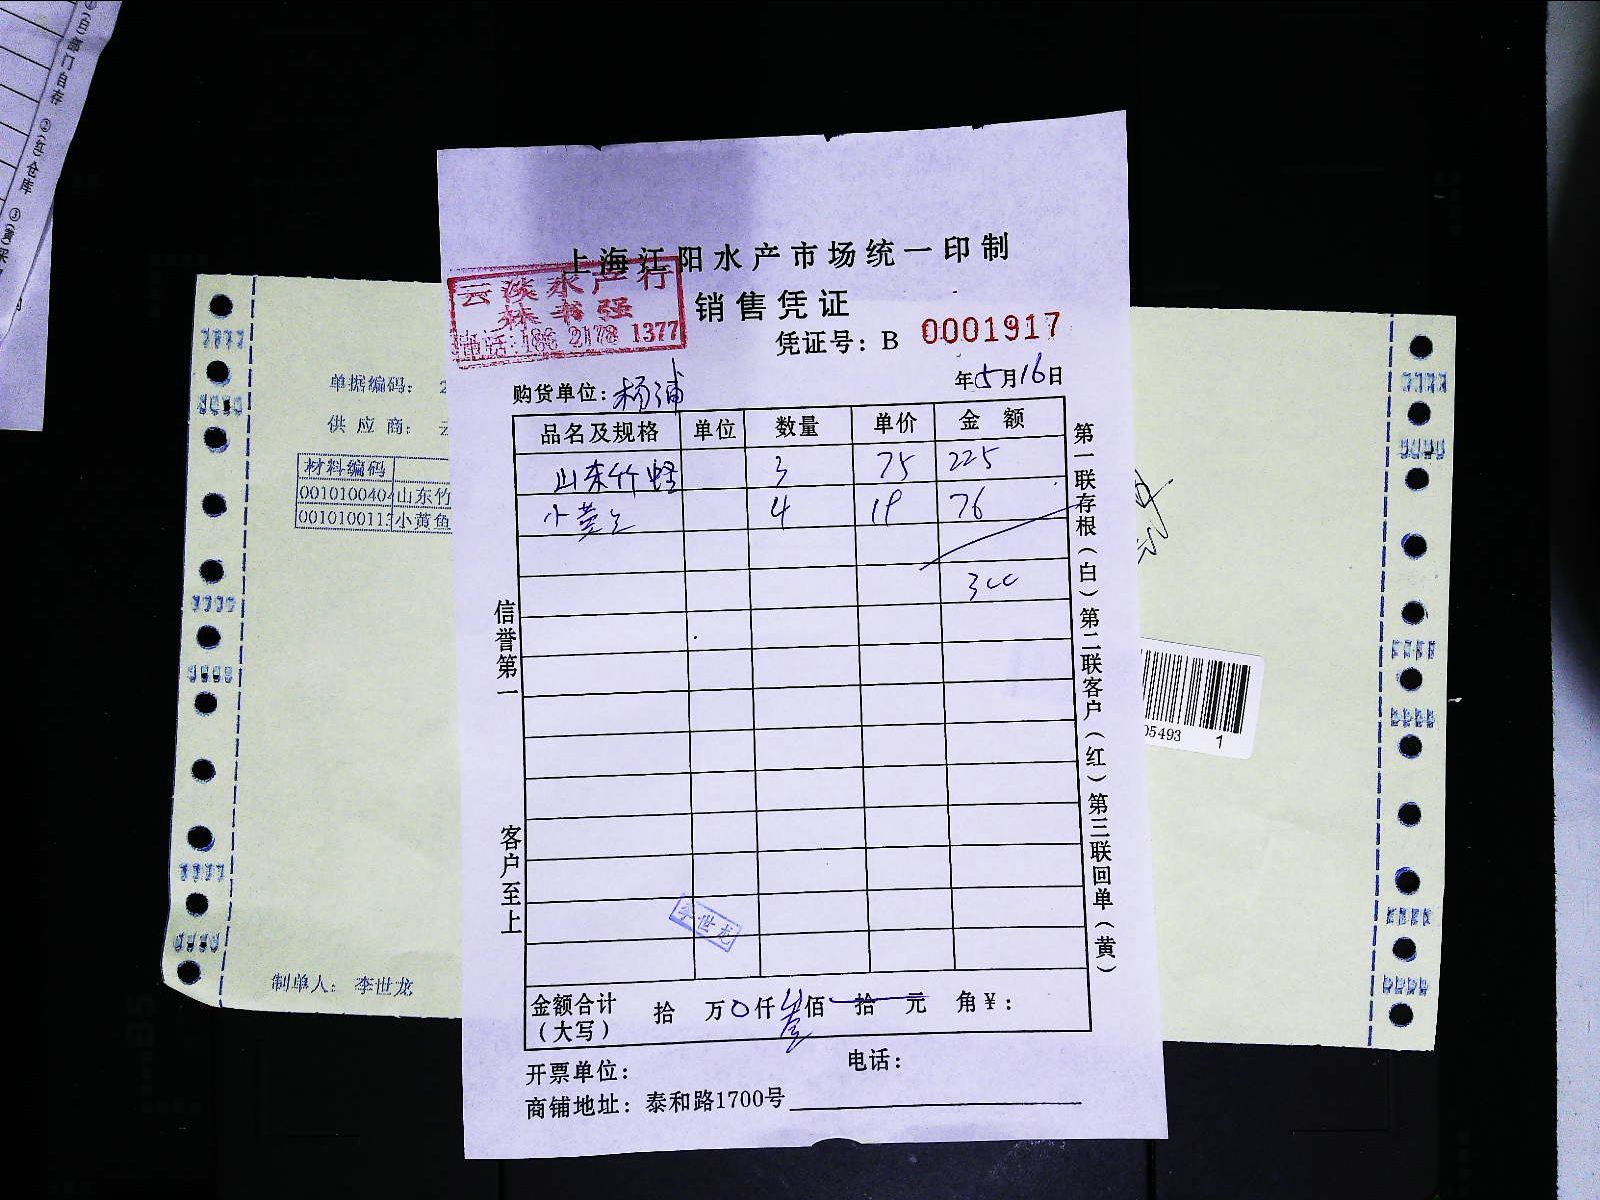 (白)部门自存 ②(红)仓库 ③(黄)采
上海江阳水产市场统一印制
销售凭证
云淡水产行
林书强
电话:186 2178 1377
凭证号: B 0001917
购货单位: 杨浦
年5月16日
品名及规格 单位 数量 单价 金额
山东竹蛏 3 75 225
小黄鱼 4 19 76
300
信誉第一
客户至上
第一联存根(白)第二联客户(红)第三联回单(黄)
李世龙
金额合计(大写) 拾 万0仟叁佰 拾 元 角¥:
开票单位:
电话:
商铺地址: 泰和路1700号
单据编码: 2
供应商: 云
材料编码
0010100404 山东竹
001010011 小黄鱼
制单人: 李世龙
05493 1